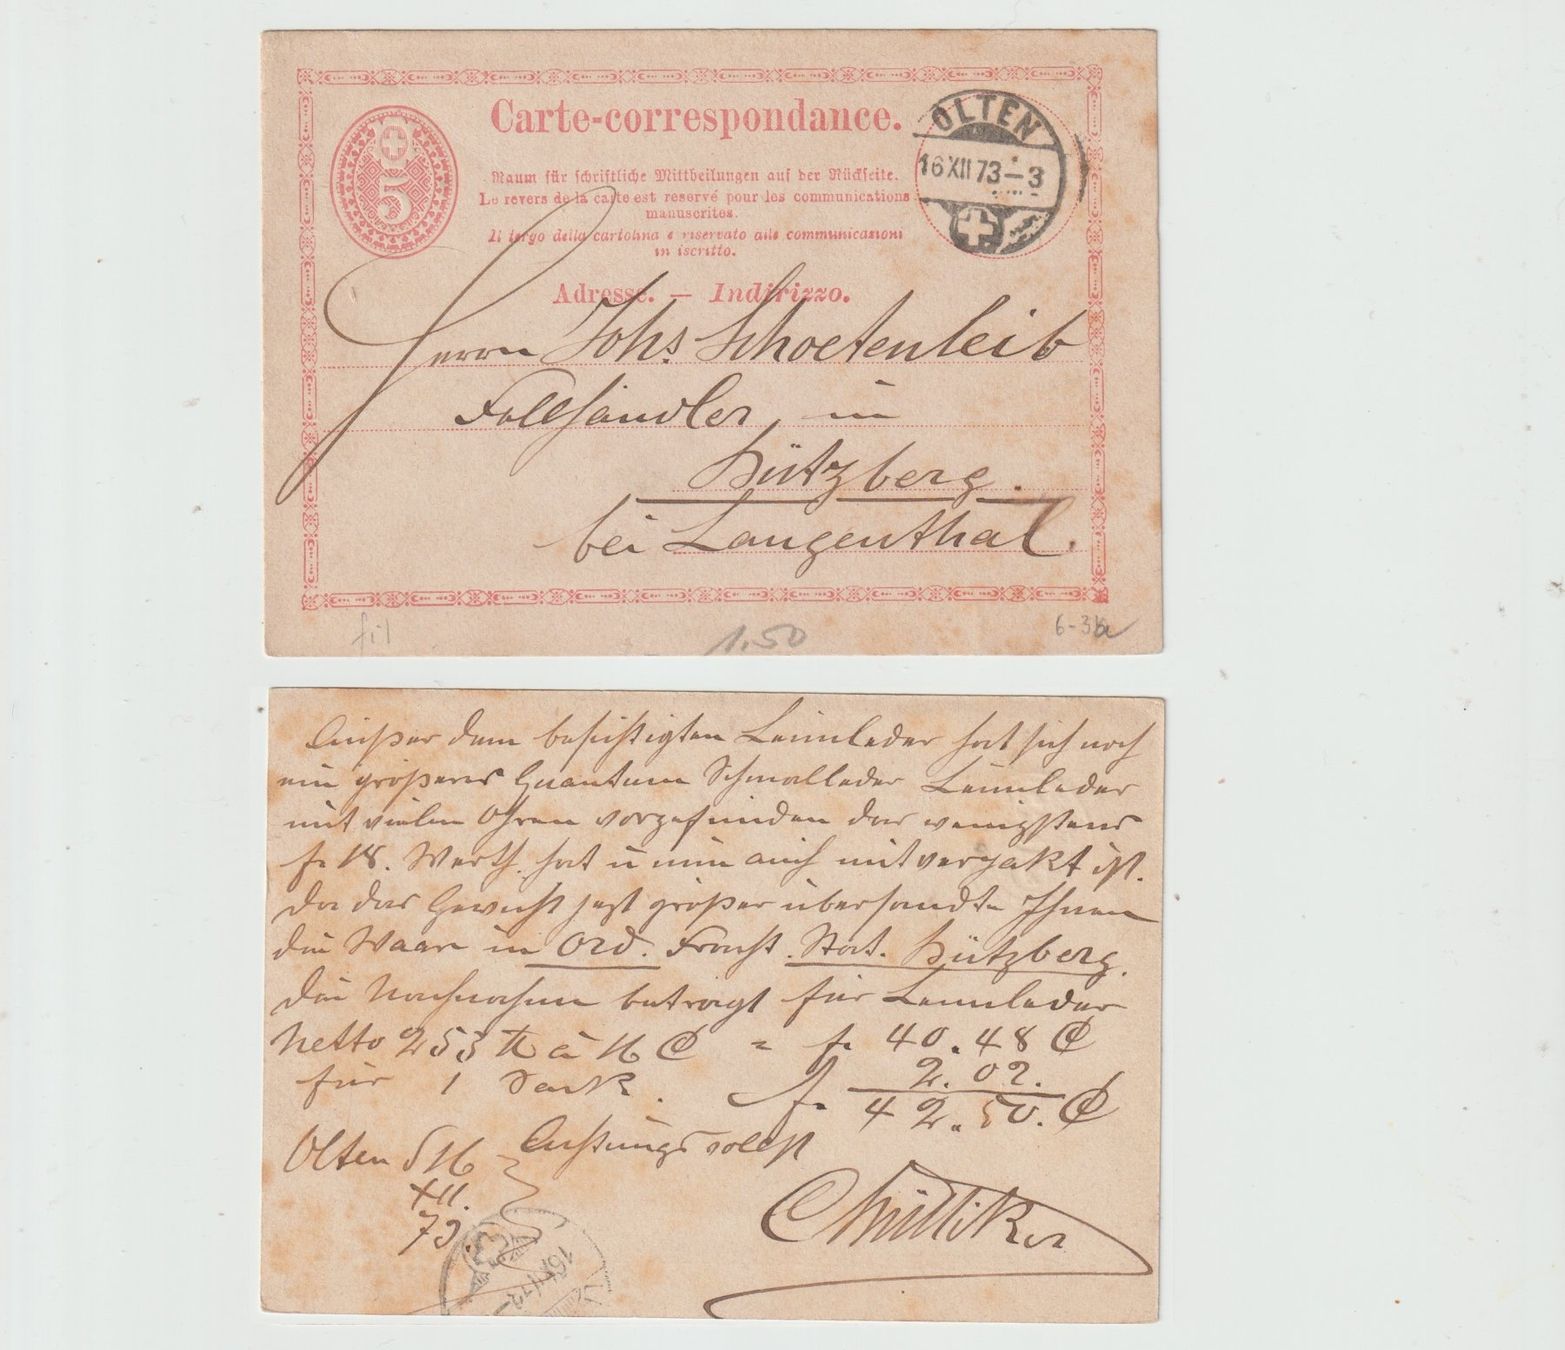 Carte-correspondance.
5
Raum für schriftliche Mittheilungen auf der Rückseite.
Le revers de la carte est reservé pour les communications
manuscrites.
Il tergo della cartolina è riservato alle communicazioni
in iscritto.
OLTEN
16 XII 73–3
Adresse. — Indirizzo.
Herrn Johs. Schoetenleib
Fellhändler in
Bützberg.
bei Langenthal.
fil
1.50
6-3
Außer dem besichtigten Leimleder hat sich noch
ein größeres Quantum Schmalleder Leimleder
mit vielen Ohren vorgefunden das wenigstens
f. 18. Werth hat u nun auch mit verpakt ist.
Da das Gewicht jezt größer übersandte Ihnen
die Waare in Ord. Fracht Stat. Bützberg.
Die Nachnahme beträgt für Leimleder
Netto 253 ℔ à 16 C = f. 40.48 C
für 1 Sack. 2.02.
f. 42.50. C
Olten d 16 Achtungsvollst
XII.
73.